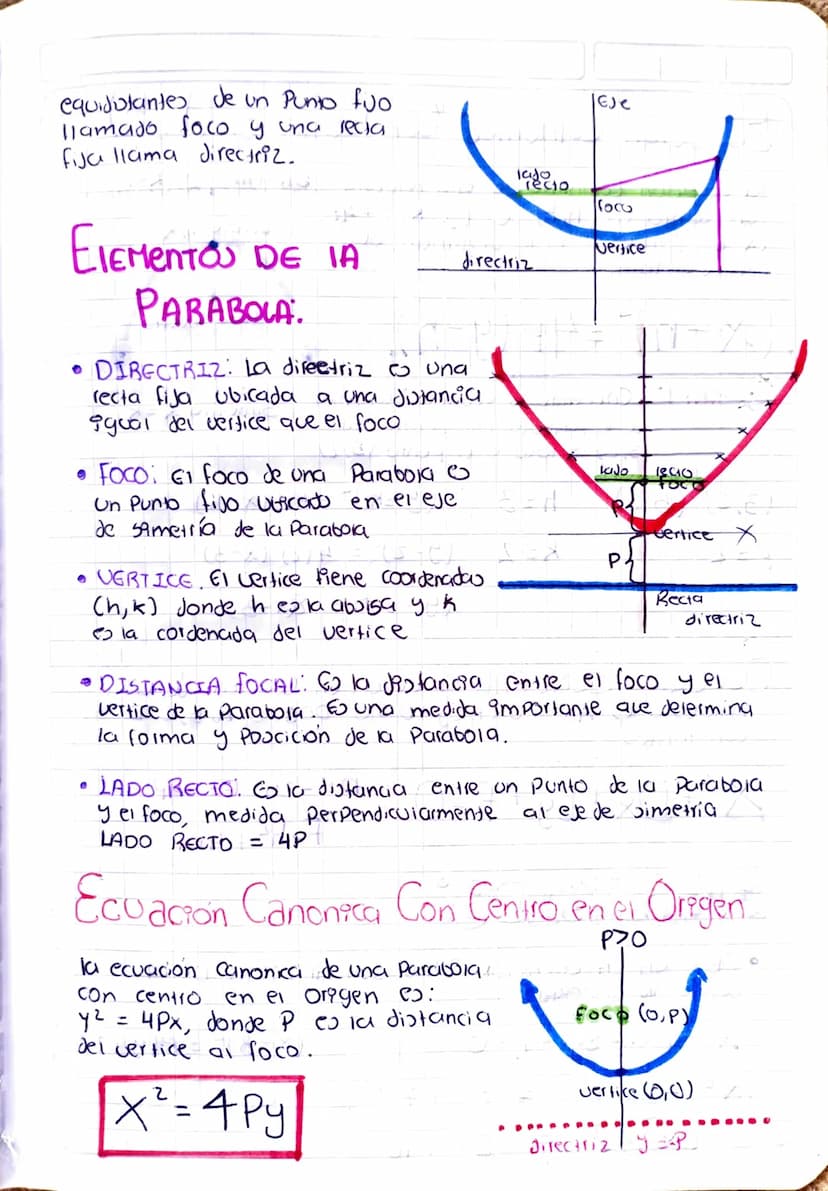 equidistantes de un Punto fijo
llamado foco y una recta
fija llama directriz.
Eje
lado
recto
foco
vertice
directriz
ELEMENTOS DE LA
PARABOLA:
• DIRECTRIZ: La directriz es una
recta fija ubicada a una distancia
igual del vertice que el foco
• FOCO: El foco de una Parabola es
un Punto fijo ubicado en el eje
de simetría de la Parabola
• VERTICE. El vertice tiene coordenadas
(h,k) donde h es la absisa y k
es la cordenada del vertice
lado recto
foco
P
vertice X
P
Recta
directriz
• DISTANCIA FOCAL: Es la distancia entre el foco y el
vertice de la Parabola. Es una medida importante que determina
la forma y Poscición de la Parabola.
• LADO RECTO: Es la distancia entre un Punto de la Parabola
y el foco, medida perpendicularmente al eje de simetria
LADO RECTO = 4P
Ecuación Canonica Con Centro en el Origen
la ecuación canonica de una Parabola
con centro en el origen es:
y² = 4Px, donde P es la distancia
del vertice al foco.
X² = 4Py
P>0
Foco (0,P)
vertice (0,0)
directriz y=-P